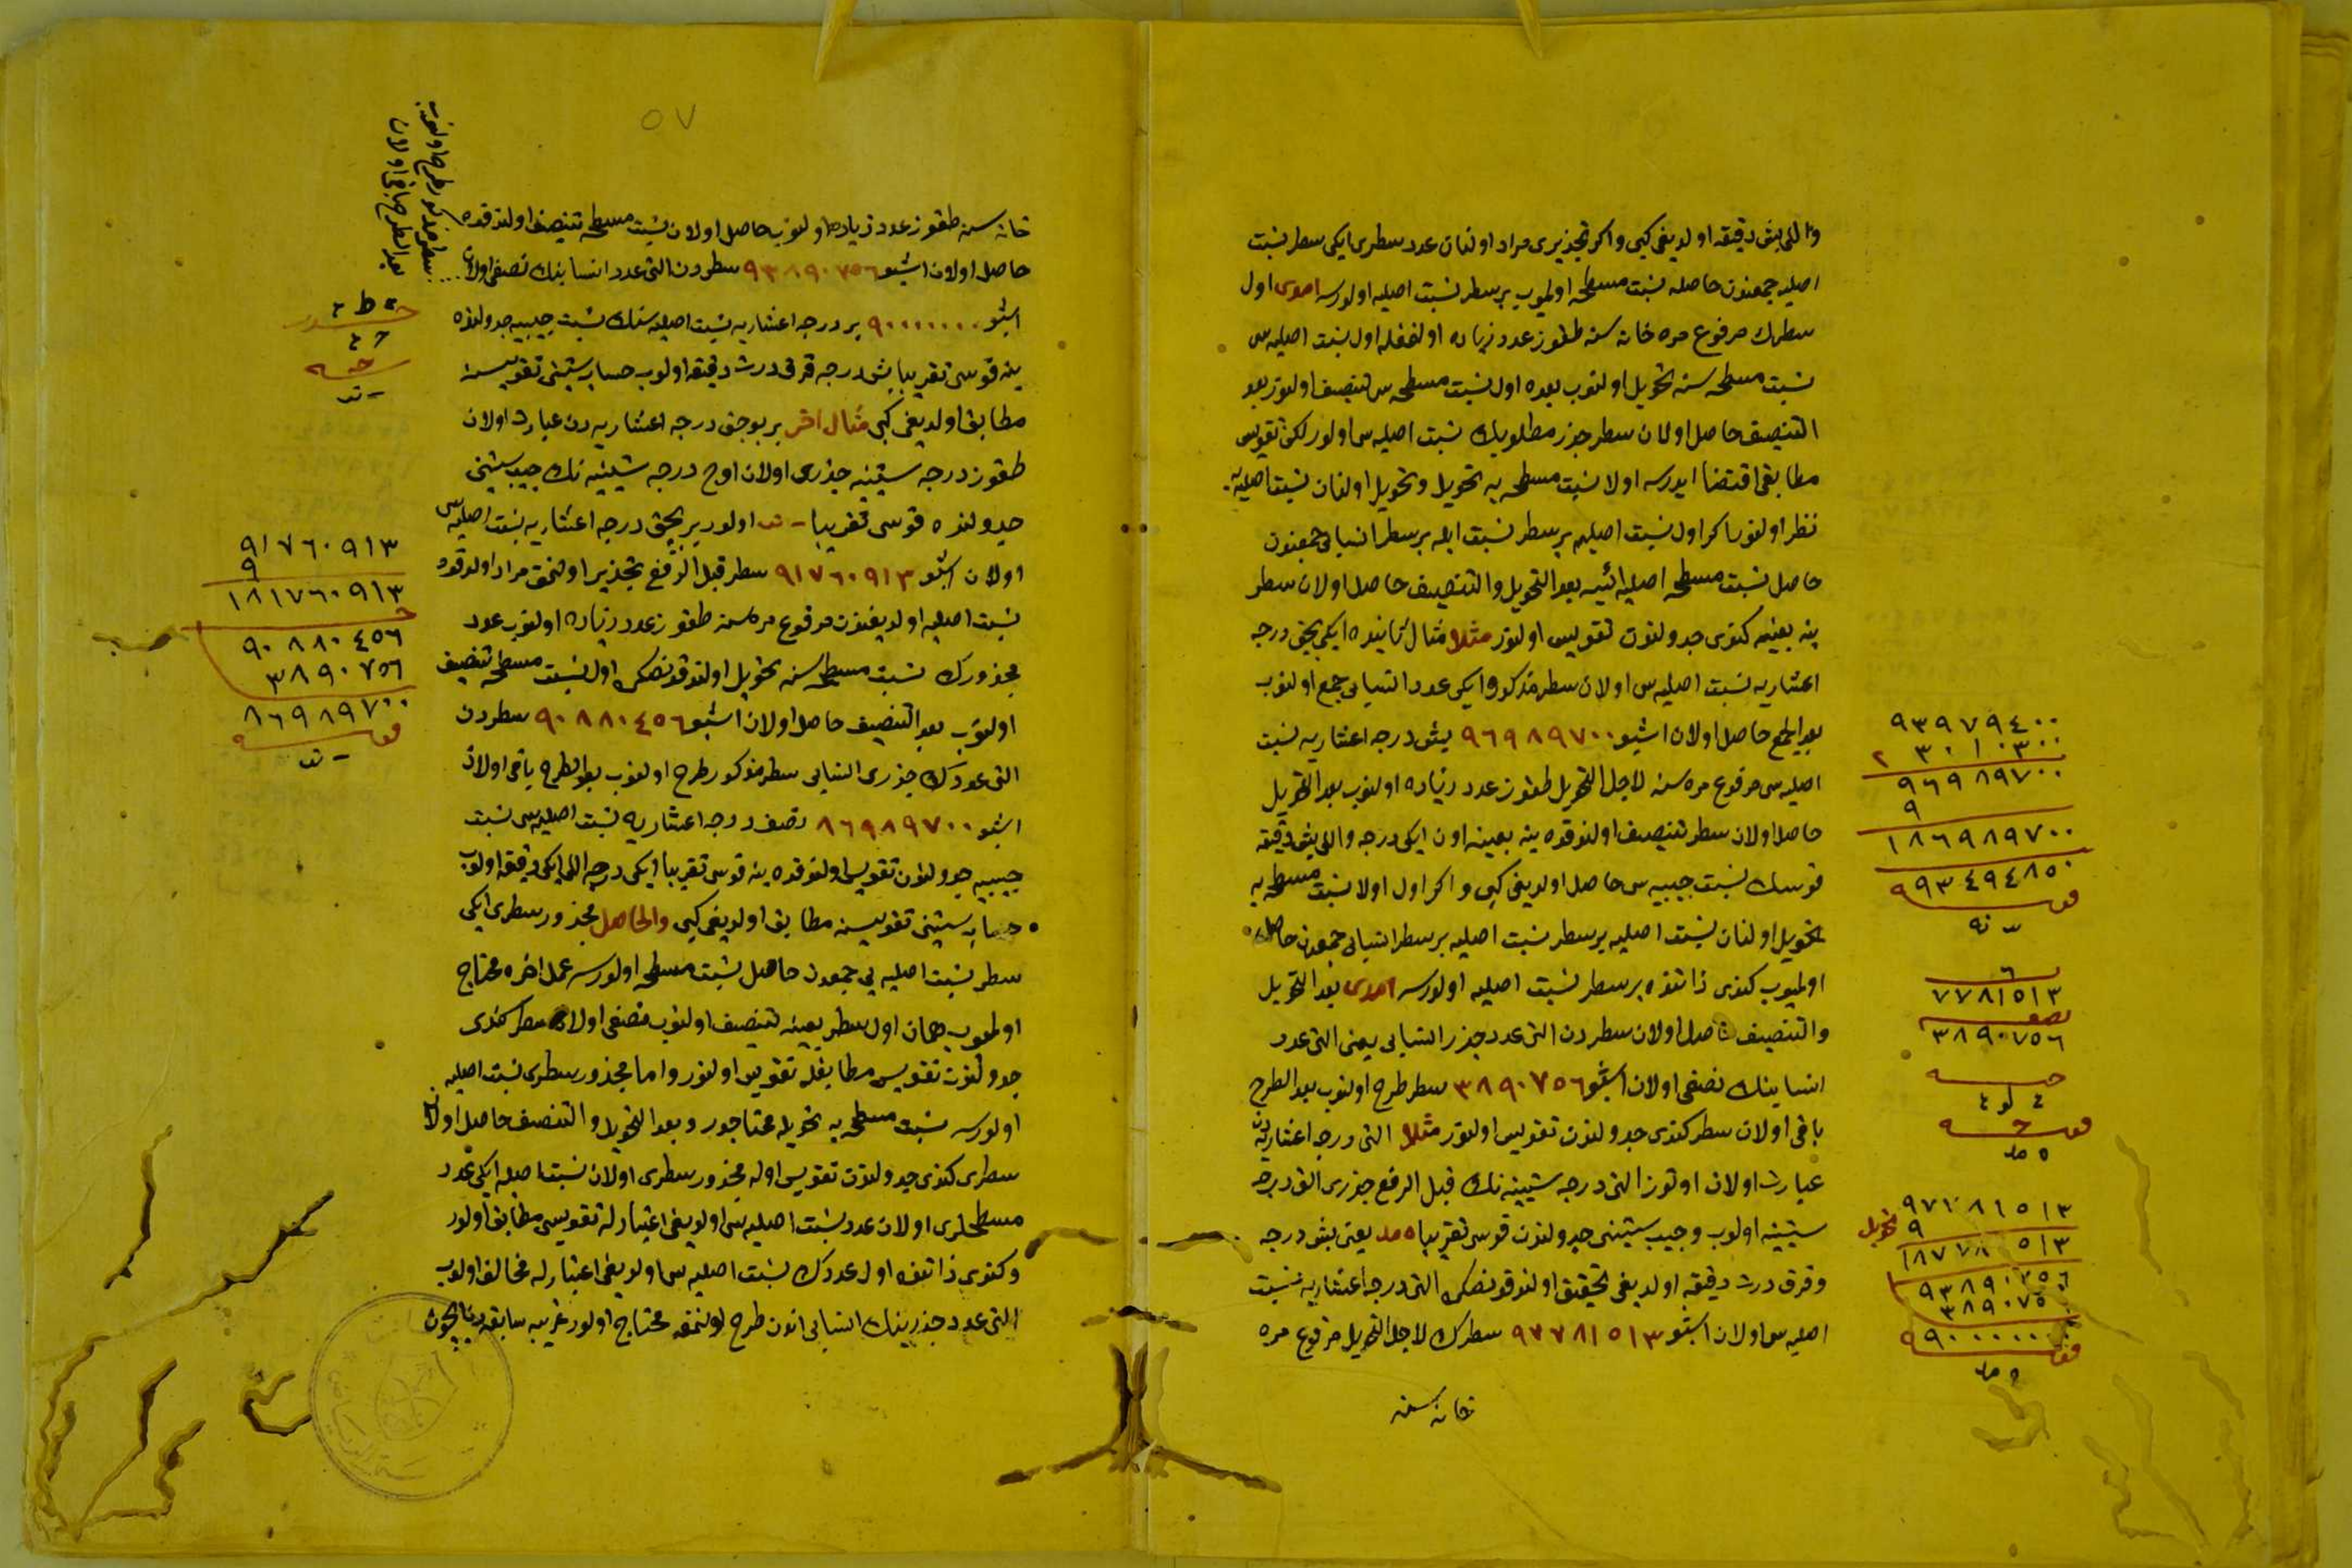 واللی بش دقیقه اولدیغی کبی واکر تجذیری مراد اولنان عدد سطری ایکی سطر نسبت
اصلیه جمعندن حاصله نسبت مسطحه اولمیوب بر سطر نسبت اصلیه اولورسه اول
سطرك مرفوع مره خانه سنه طقوز عدد زیاده اولنمغله اول نسبت اصلیه سی
نسبت مسطحه سنه تحویل اولنوب بعده اول نسبت مسطحه سی تنصیف اولنور بعد
التنصیف حاصل اولان سطر جذر مطلوبك نسبت اصلیه سی اولور لکن تقویس
مطابقی اقتضا ایدرسه اولا نسبت مسطحه یه تحویل و تحویل اولنان نسبت اصلیه یه
نظر اولنور اکر اول نسبت اصلیه بر سطر نسبت ایله بر سطر انسابی جمعندن
حاصل نسبت مسطحه اصلیه ایسه بعد التحویل والتنصیف حاصل اولان سطر
ینه بعینه کندی جدولندن تقویس اولنور مثلا مثال ثانیده ایکی بچق درجه
اعشاریه نسبت اصلیه سی اولان سطر مذکور ایکی عدد انسابی جمع اولنوب
بعد الجمع حاصل اولان اشبو ٩٦٩٨٩٧٠٠ بش درجه اعشاریه نسبت
اصلیه سی مرفوع مره سنه لاجل التحویل طقوز عدد زیاده اولنوب بعد التحویل
حاصل اولان سطر تنصیف اولندقده ینه بعینه اون ایکی درجه واللی بش دقیقه
قوسك نسبت جیبیه سی حاصل اولدیغی کبی و اکر اول اولا نسبت مسطحه یه
تحویل اولنان نسبت اصلیه بر سطر نسبت اصلیه بر سطر انسابی جمعندن حاصل
اولمیوب کندی ذاتنده بر سطر نسبت اصلیه اولورسه بعد التحویل
والتنصیف حاصل اولان سطردن التی عدد جذر انسابی یعنی التی عدد
انسابنك نصفی اولان اشبو ٣٨٩٠٧٥٦ سطر طرح اولنوب بعد الطرح
باقی اولان سطر کندی جدولندن تقویس اولنور مثلا التی درجه اعشاریه دن
عبارت اولان اوتوز التی درجه ستینیه نك قبل الرفع جذری التی درجه
ستینیه اولوب وجیب ستینی جدولندن قوسی تقریبا ه مد یعنی بش درجه
وقرق درت دقیقه اولدیغی تحقیق اولندقدنصکره التی درجه اعشاریه نسبت
اصلیه سی اولان اشبو ٩٧٧٨١٥١٣ سطرك لاجل التحویل مرفوع مره
خانه سنه
٩٣٩٧٩٤٠٠
٢ ٣٠١٠٣٠٠
٩٦٩٨٩٧٠٠
٩
١٨٦٩٨٩٧٠٠
٩٩٣٤٩٤٨٥٠
٦
٧٧٨١٥١٣
نصف
٣٨٩٠٧٥٦
٤ لو ٤
ه مد
تحویل
٩٧٧٨١٥١٣
٩
١٨٧٧٨١٥١٣
٩٣٨٩٠٧٥٦
٣٨٩٠٧٥٦
٩٩٠٠٠٠٠٠٠
ه مد
٥٧
خانه سنه طقوز عدد زیاده اولنوب حاصل اولان نسبت مسطحه تنصیف اولندقده
حاصل اولان اشبو ٩٣٨٩٠٧٥٦ سطردن التی عدد انسابنك نصفی اولان
سطر مذکور طرح اولنوب
بعد الطرح باقی اولان
اشبو ٩٠٠٠٠٠٠٠ بر درجه اعشاریه نسبت اصلیه سنك نسبت جیبیه جدولنده
ینه قوسی تقریبا بش درجه قرق درت دقیقه اولوب حساب ستینی تقویسنه
مطابق اولدیغی کبی مثال اخر بر بوچق درجه اعشاریه دن عبارت اولان
طقوز درجه ستینیه جذری اولان اوچ درجه ستینیه نك جیب ستینی
جدولنده قوسی تقریبا اولور بر بچق درجه اعشاریه نسبت اصلیه سی
اولان اشبو ٩١٧٦٠٩١٣ سطر قبل الرفع تجذیر اولنمق مراد اولندقده
نسبت اصلیه اولدیغندن مرفوع مره سنه طقوز عدد زیاده اولنوب عدد
مجذورك نسبت مسطحه سنه تحویل اولندقدنصکره اول نسبت مسطحه تنصیف
اولنوب بعد التنصیف حاصل اولان اشبو ٩٠٨٨٠٤٥٦ سطردن
التی عددك جذری انسابی سطر مذکور طرح اولنوب بعد الطرح باقی اولان
اشبو ٨٦٩٨٩٧٠٠ نصف درجه اعشاریه نسبت اصلیه سی نسبت
جیبیه جدولندن تقویس اولندقده ینه قوسی تقریبا ایکی درجه اللی ایکی دقیقه اولوب
حساب ستینی تقویسنه مطابق اولدیغی کبی والحاصل مجذور سطری ایکی
سطر نسبت اصلیه یی جمعدن حاصل نسبت مسطحه اولورسه عمل اخره محتاج
اولمیوب همان اول سطر بعینه تنصیف اولنوب منصفی اولان سطر کندی
جدولندن تقویس مطابقله تقویس اولنور واما مجذور سطری نسبت اصلیه
اولورسه نسبت مسطحه یه تحویله محتاجدر وبعد التحویل والتنصیف حاصل اولان
سطری کندی جدولندن تقویس اوله مجذور سطری اولان نسبت اصلیه ایکی عدد
مسطحلری اولان عدد نسبت اصلیه سی اولدیغی اعتبارله تقویسی مطابق اولور
وکندی ذاتنده اول عددك نسبت اصلیه سی اولدیغی اعتبارله مخالف اولوب
التی عدد جذرینك انسابی اندن طرح اولنمغه محتاج اولور
٩١٧٦٠٩١٣
٩
١٨١٧٦٠٩١٣
٩٠٨٨٠٤٥٦
٣٨٩٠٧٥٦
٨٦٩٨٩٧٠٠